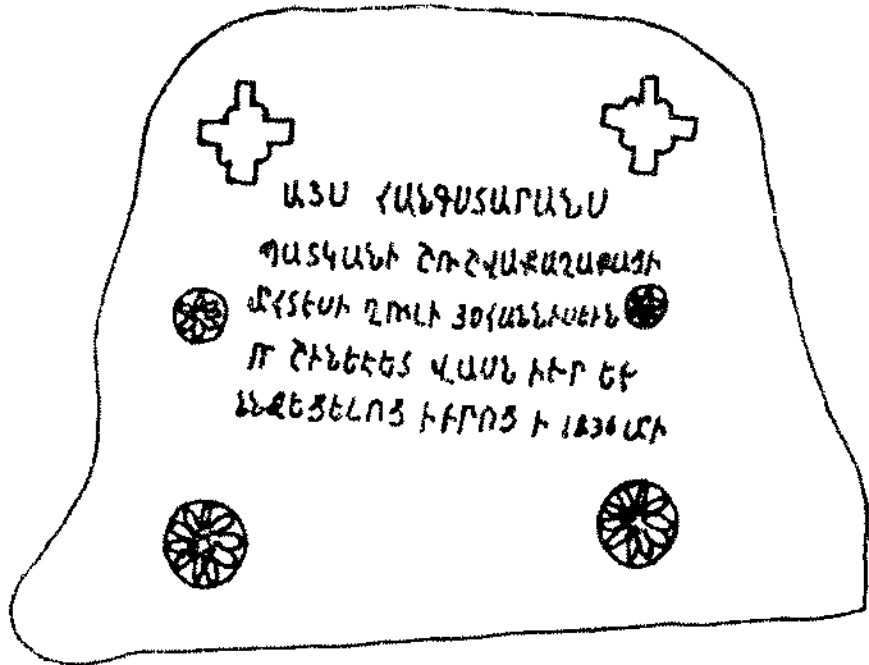 ԱՅՍ ՀԱՆԳՍՏԱՐԱՆՍ
ՊԱՏԿԱՆԻ ՇՈՒՇՎԱՔԱՂԱՔԱՑԻ
ՄՀՏԷՍԻ ՂՈՒԼԻ ՅՕՀԱՆՆԻՍԷԻՆ
ՈՐ ՇԻՆԵԵԵՑ ՎԱՍՆ ԻՒՐ ԵՒ
ՆՆՋԵՑԵԼՈՑ ԻՒՐՈՑ Ի 1836 ԱՄԻ